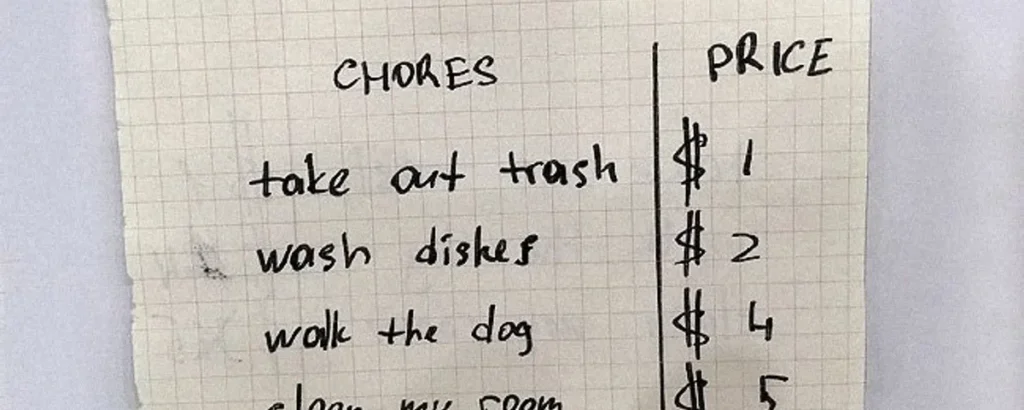 CHORES PRICE
take out trash $ 1
wash dishes $ 2
walk the dog $ 4
clean my room $ 5